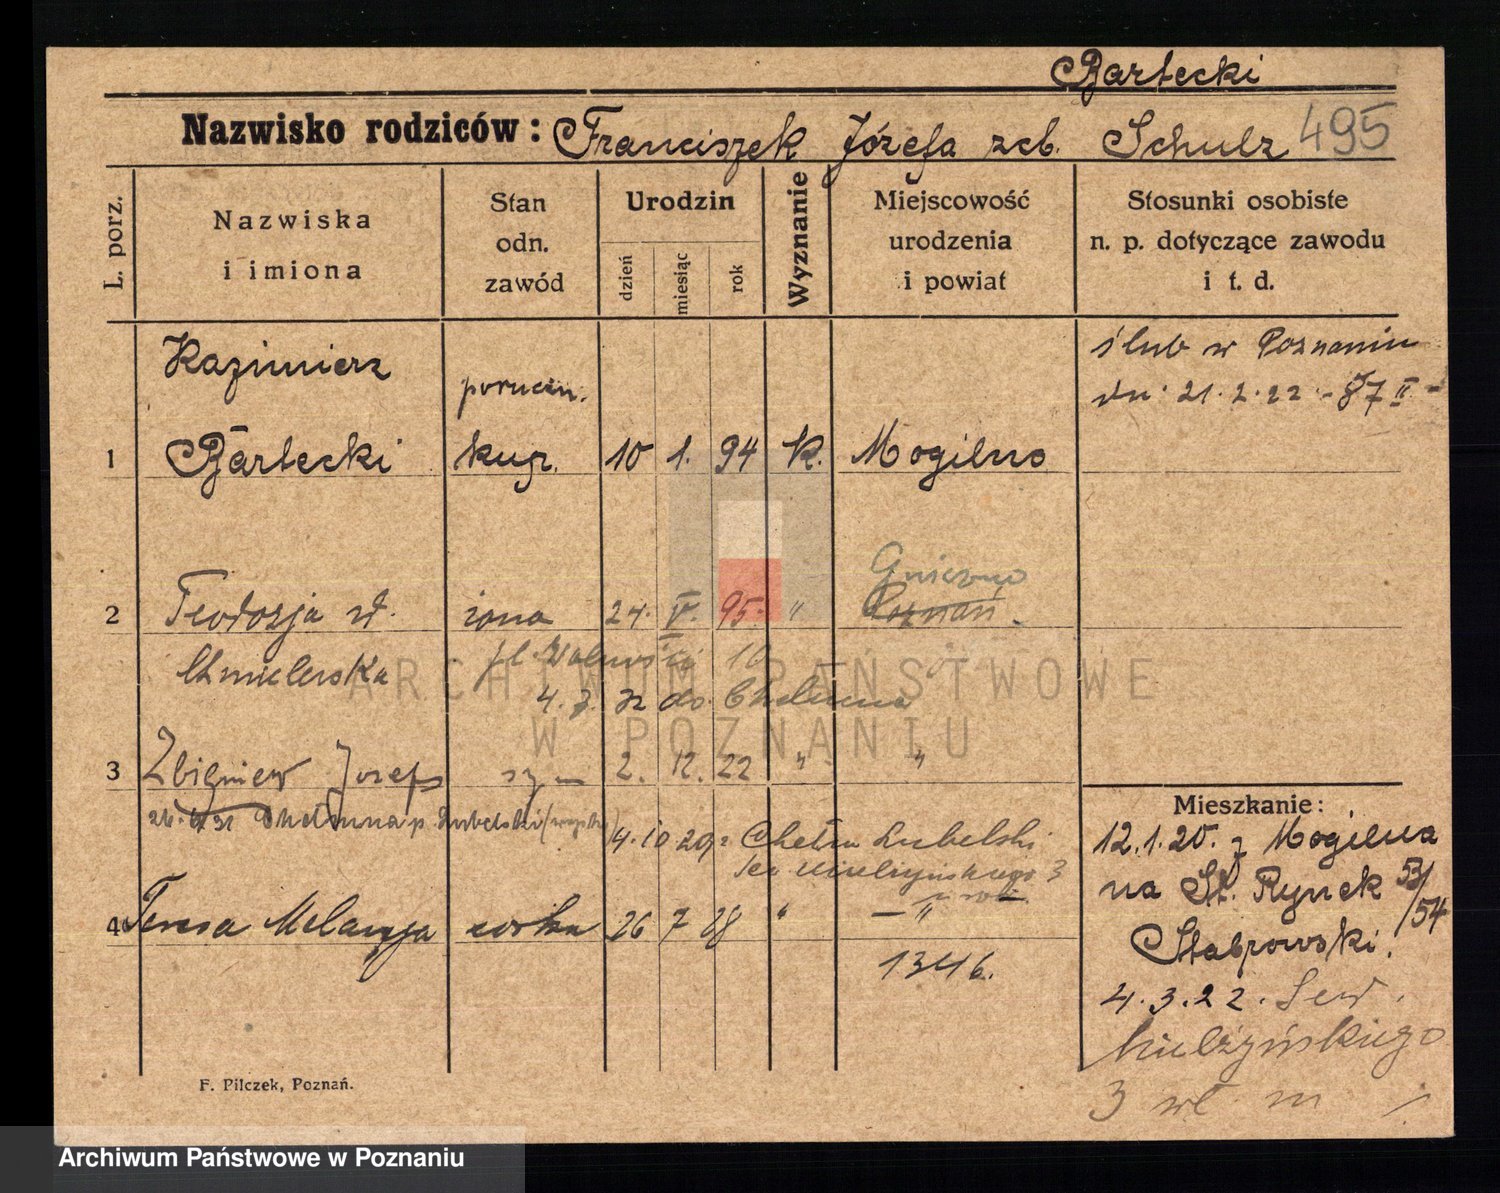 Bartecki
Nazwisko rodziców: Franciszek Józefa zeb. Schulz 495
L. porz.
Nazwiska
i imiona
Stan
odn.
zawód
Urodzin
dzień
miesiąc
rok
Wyznanie
Miejscowość
urodzenia
i powiat
Stosunki osobiste
n. p. dotyczące zawodu
i t. d.
ślub w Poznaniu
dn. 21.2.22 - 87 II -
Kazimierz
poruczn.
1 Bartecki kup. 10 1. 94 K. Mogilno
Gniezno
2 Teodozja żona 24. V. 95. " Poznań.
Chmielewska
10
4. do Chełmna
3 Zbigniew Józef syn 2. 12. 22 " "
Chełmna p. Lubelski
4. 10 29 Chełm Lubelski
Mielżyńskiego 3
4 Teresa Melanja córka 26 7 28 " - " -
1346.
Mieszkanie:
12.1.20. z Mogilna
na St. Rynek 53/54
4.3.22. Sew.
Mielżyńskiego
3 wł. m
F. Pilczek, Poznań.
ARCHIWUM PAŃSTWOWE
W POZNANIU
Archiwum Państwowe w Poznaniu